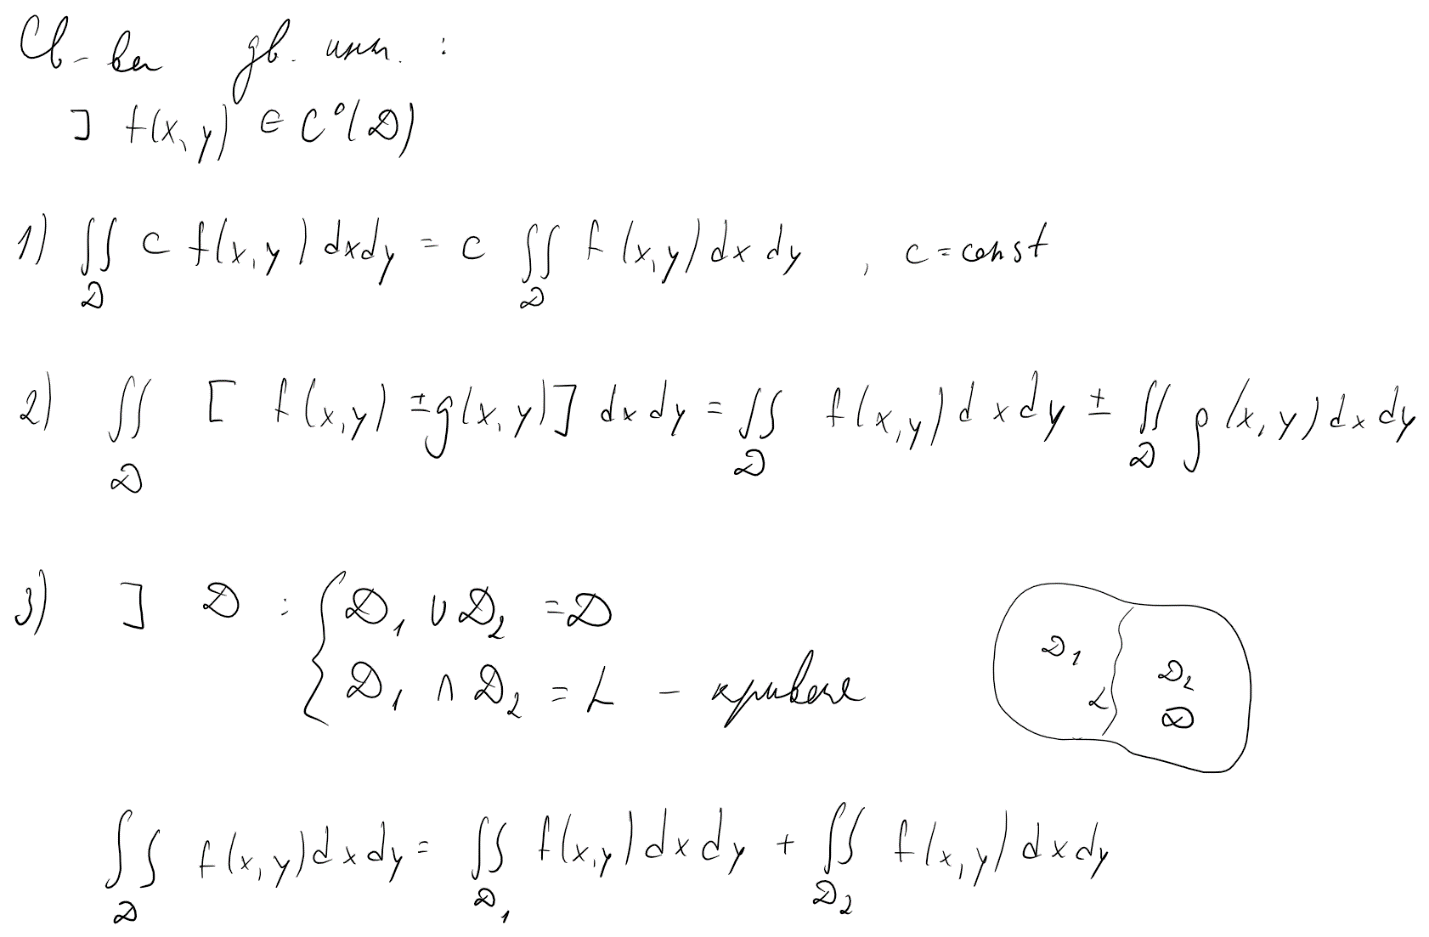 Св-ва дв. инт. :
] f(x, y) ∈ C⁰(D)
1) ∬_D c f(x, y) dxdy = c ∬_D f(x, y) dx dy , c = const
2) ∬_D [ f(x, y) ± g(x, y) ] dxdy = ∬_D f(x, y) dxdy ± ∬_D g(x, y) dxdy
3) ] D : { D₁ ∪ D₂ = D
D₁ ∩ D₂ = L – кривая
D₁
D₂
L
D
∬_D f(x, y) dxdy = ∬_D₁ f(x, y) dxdy + ∬_D₂ f(x, y) dxdy